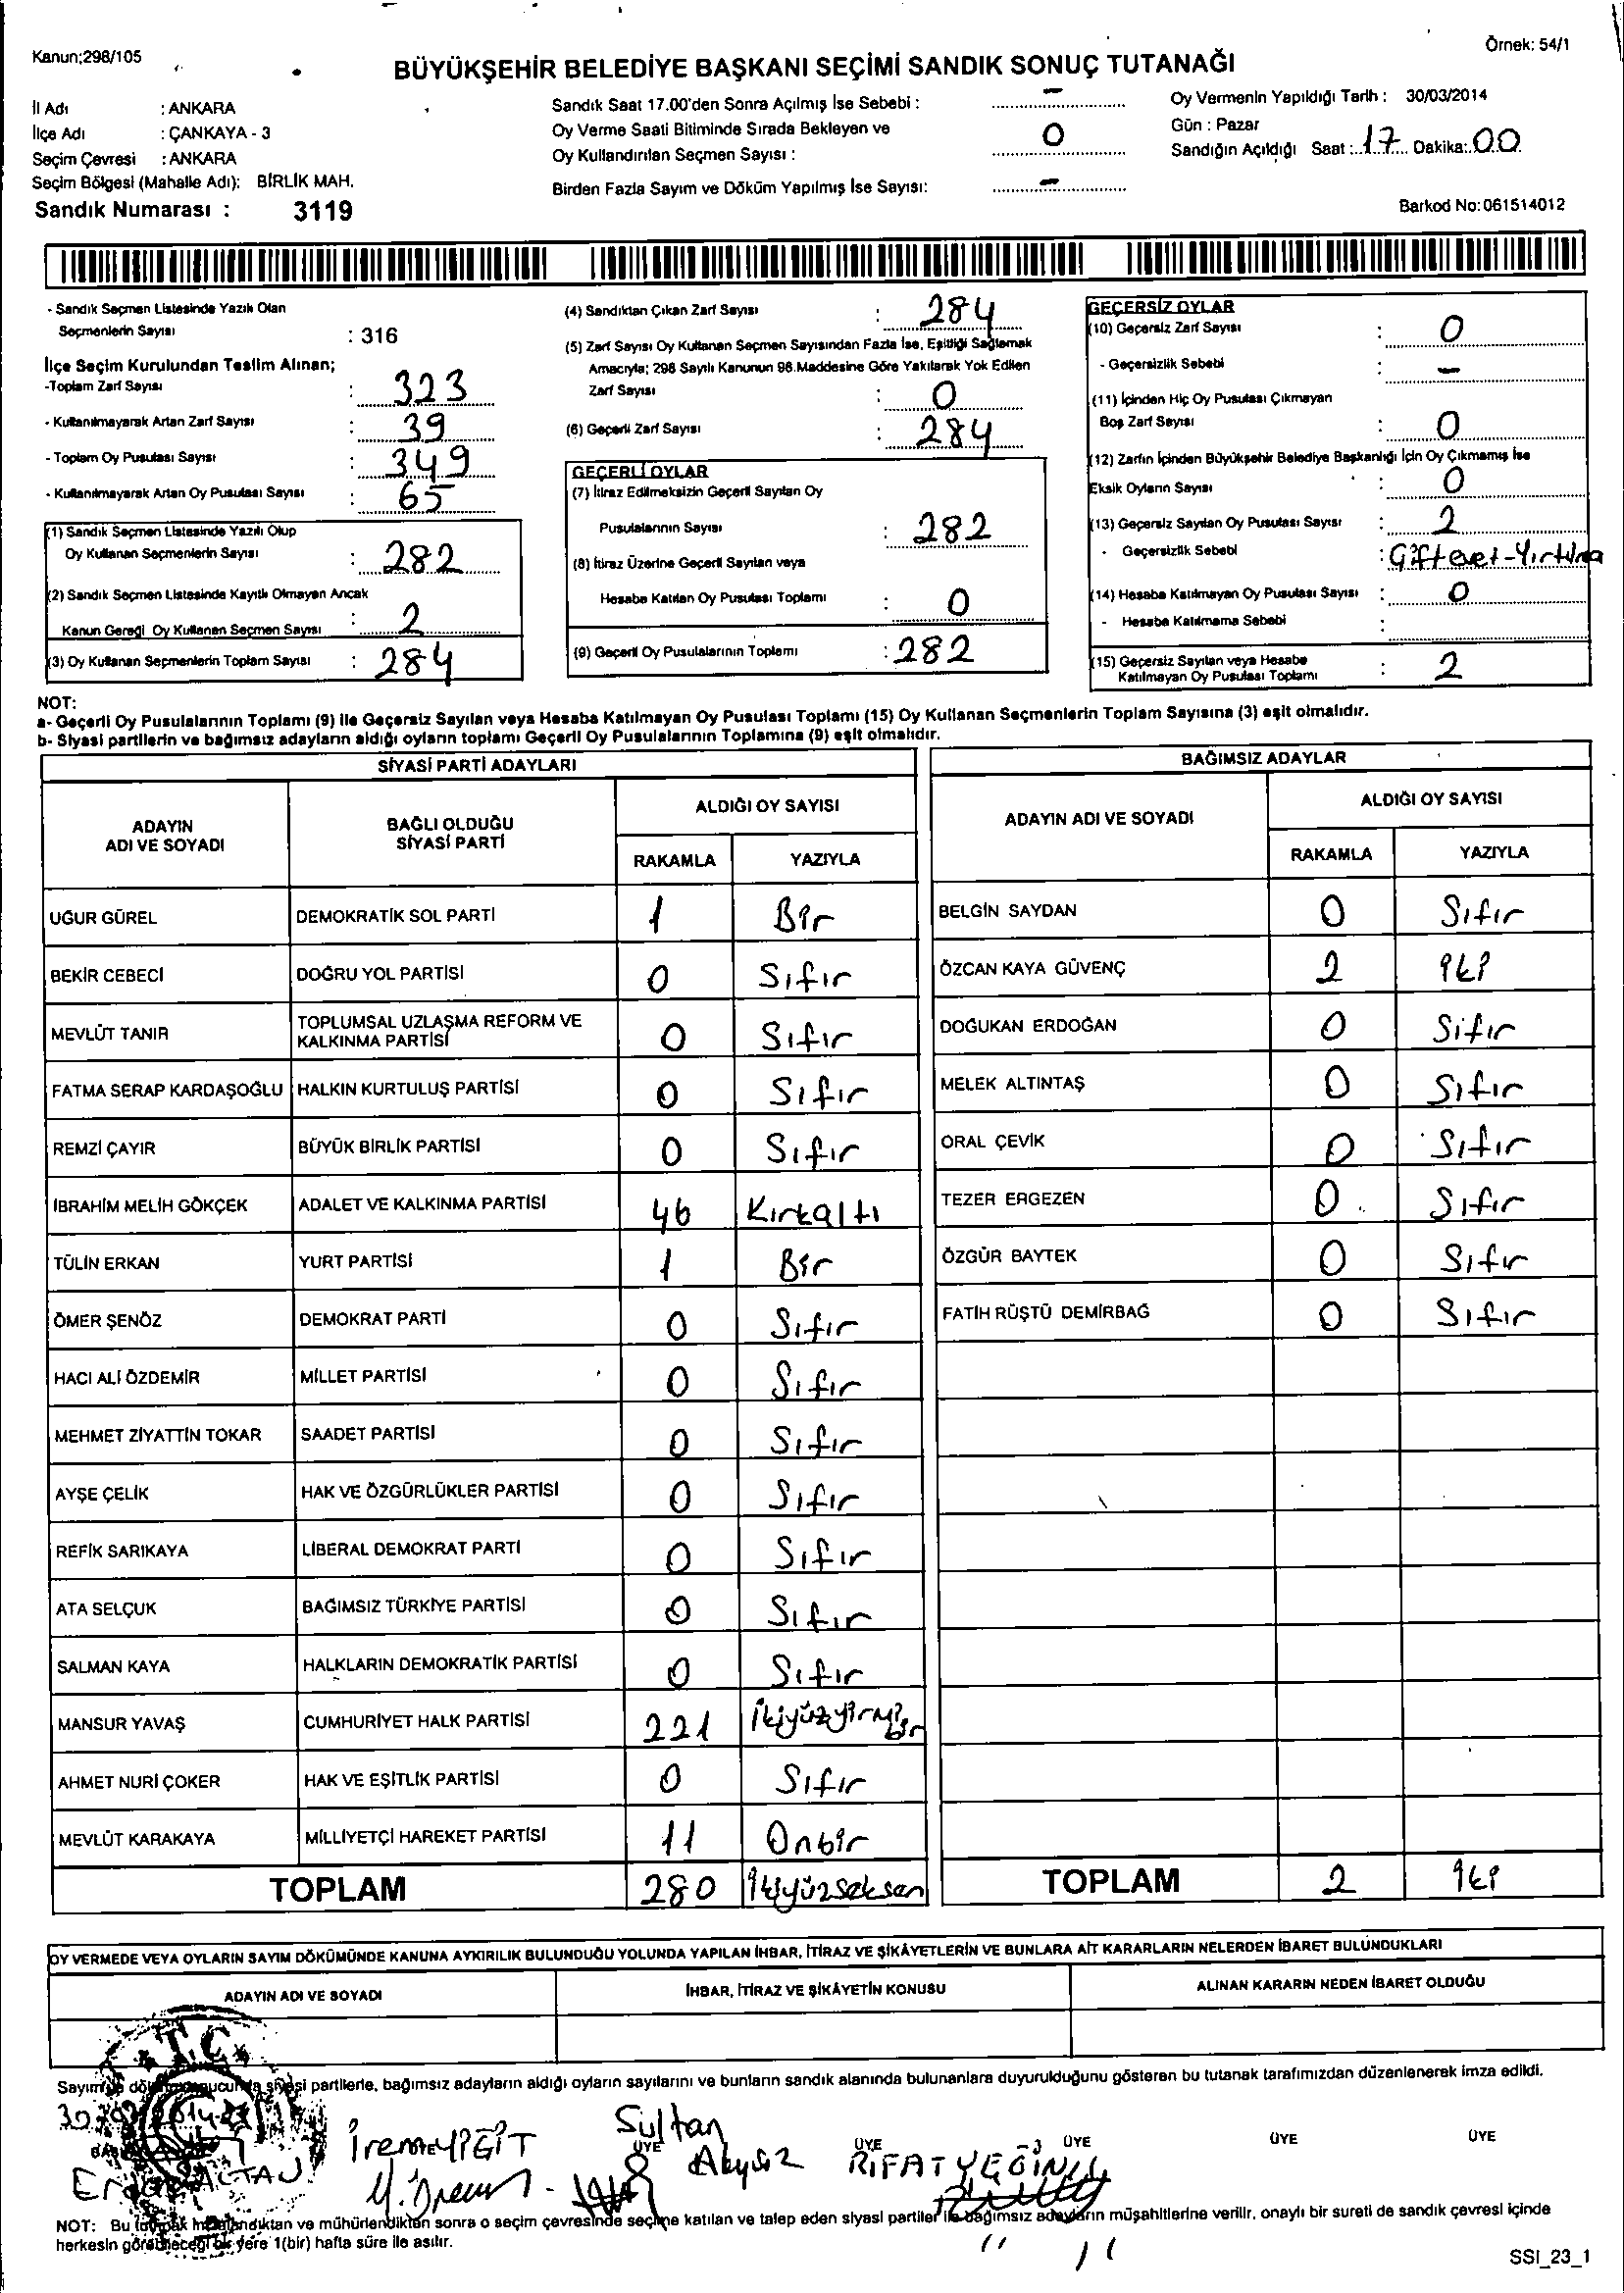 Kanun;298/105
Örnek: 54/1
BÜYÜKŞEHİR BELEDİYE BAŞKANI SEÇİMİ SANDIK SONUÇ TUTANAĞI
İl Adı : ANKARA
İlçe Adı : ÇANKAYA - 3
Seçim Çevresi : ANKARA
Seçim Bölgesi (Mahalle Adı): BİRLİK MAH.
Sandık Numarası : 3119
Sandık Saat 17.00'den Sonra Açılmış İse Sebebi : -
Oy Verme Saati Bitiminde Sırada Bekleyen ve
Oy Kullandırılan Seçmen Sayısı : 0
Birden Fazla Sayım ve Döküm Yapılmış İse Sayısı: -
Oy Vermenin Yapıldığı Tarih : 30/03/2014
Gün : Pazar
Sandığın Açıldığı Saat : 17 Dakika: 00
Barkod No:061514012
- Sandık Seçmen Listesinde Yazılı Olan
Seçmenlerin Sayısı : 316
İlçe Seçim Kurulundan Teslim Alınan;
-Toplam Zarf Sayısı : 323
- Kullanılmayarak Artan Zarf Sayısı : 39
- Toplam Oy Pusulası Sayısı : 349
- Kullanılmayarak Artan Oy Pusulası Sayısı : 65
(1) Sandık Seçmen Listesinde Yazılı Olup
Oy Kullanan Seçmenlerin Sayısı : 282
(2) Sandık Seçmen Listesinde Kayıtlı Olmayan Ancak
Kanun Gereği Oy Kullanan Seçmen Sayısı : 2
(3) Oy Kullanan Seçmenlerin Toplam Sayısı : 284
(4) Sandıktan Çıkan Zarf Sayısı : 284
(5) Zarf Sayısı Oy Kullanan Seçmen Sayısından Fazla İse, Eşitliği Sağlamak
Amacıyla; 298 Sayılı Kanunun 98.Maddesine Göre Yakılarak Yok Edilen
Zarf Sayısı : 0
(6) Geçerli Zarf Sayısı : 284
GEÇERLİ OYLAR
(7) İtiraz Edilmeksizin Geçerli Sayılan Oy
Pusulalarının Sayısı : 282
(8) İtiraz Üzerine Geçerli Sayılan veya
Hesaba Katılan Oy Pusulası Toplamı : 0
(9) Geçerli Oy Pusulalarının Toplamı : 282
GEÇERSİZ OYLAR
(10) Geçersiz Zarf Sayısı : 0
- Geçersizlik Sebebi : -
(11) İçinden Hiç Oy Pusulası Çıkmayan
Boş Zarf Sayısı : 0
(12) Zarfın İçinden Büyükşehir Belediye Başkanlığı İçin Oy Çıkmamış İse
Eksik Oyların Sayısı : 0
(13) Geçersiz Sayılan Oy Pusulası Sayısı : 2
- Geçersizlik Sebebi : Çift evet-Yırtılma
(14) Hesaba Katılmayan Oy Pusulası Sayısı : 0
- Hesaba Katılmama Sebebi :
(15) Geçersiz Sayılan veya Hesaba
Katılmayan Oy Pusulası Toplamı : 2
NOT:
a- Geçerli Oy Pusulalarının Toplamı (9) ile Geçersiz Sayılan veya Hesaba Katılmayan Oy Pusulası Toplamı (15) Oy Kullanan Seçmenlerin Toplam Sayısına (3) eşit olmalıdır.
b- Siyasi partilerin ve bağımsız adayların aldığı oyların toplamı Geçerli Oy Pusulalarının Toplamına (9) eşit olmalıdır.
SİYASİ PARTİ ADAYLARI
ADAYIN ADI VE SOYADI
BAĞLI OLDUĞU SİYASİ PARTİ
ALDIĞI OY SAYISI
RAKAMLA YAZIYLA
UĞUR GÜREL DEMOKRATİK SOL PARTİ 1 Bir
BEKİR CEBECİ DOĞRU YOL PARTİSİ 0 Sıfır
MEVLÜT TANIR TOPLUMSAL UZLAŞMA REFORM VE KALKINMA PARTİSİ 0 Sıfır
FATMA SERAP KARDAŞOĞLU HALKIN KURTULUŞ PARTİSİ 0 Sıfır
REMZİ ÇAYIR BÜYÜK BİRLİK PARTİSİ 0 Sıfır
İBRAHİM MELİH GÖKÇEK ADALET VE KALKINMA PARTİSİ 46 Kırkaltı
TÜLİN ERKAN YURT PARTİSİ 1 Bir
ÖMER ŞENÖZ DEMOKRAT PARTİ 0 Sıfır
HACI ALİ ÖZDEMİR MİLLET PARTİSİ 0 Sıfır
MEHMET ZİYATTİN TOKAR SAADET PARTİSİ 0 Sıfır
AYŞE ÇELİK HAK VE ÖZGÜRLÜKLER PARTİSİ 0 Sıfır
REFİK SARIKAYA LİBERAL DEMOKRAT PARTİ 0 Sıfır
ATA SELÇUK BAĞIMSIZ TÜRKİYE PARTİSİ 0 Sıfır
SALMAN KAYA HALKLARIN DEMOKRATİK PARTİSİ 0 Sıfır
MANSUR YAVAŞ CUMHURİYET HALK PARTİSİ 221 İkiyüzyirmibir
AHMET NURİ ÇOKER HAK VE EŞİTLİK PARTİSİ 0 Sıfır
MEVLÜT KARAKAYA MİLLİYETÇİ HAREKET PARTİSİ 11 Onbir
TOPLAM 280 İkiyüzseksen
BAĞIMSIZ ADAYLAR
ADAYIN ADI VE SOYADI
ALDIĞI OY SAYISI
RAKAMLA YAZIYLA
BELGİN SAYDAN 0 Sıfır
ÖZCAN KAYA GÜVENÇ 2 İki
DOĞUKAN ERDOĞAN 0 Sıfır
MELEK ALTINTAŞ 0 Sıfır
ORAL ÇEVİK 0 Sıfır
TEZER ERGEZEN 0 Sıfır
ÖZGÜR BAYTEK 0 Sıfır
FATİH RÜŞTÜ DEMİRBAĞ 0 Sıfır
TOPLAM 2 İki
OY VERMEDE VEYA OYLARIN SAYIM DÖKÜMÜNDE KANUNA AYKIRILIK BULUNDUĞU YOLUNDA YAPILAN İHBAR, İTİRAZ VE ŞİKÂYETLERİN VE BUNLARA AİT KARARLARIN NELERDEN İBARET BULUNDUKLARI
ADAYIN ADI VE SOYADI
İHBAR, İTİRAZ VE ŞİKÂYETİN KONUSU
ALINAN KARARIN NEDEN İBARET OLDUĞU
T.C.
Sayım siyasi partilerle, bağımsız adayların aldığı oyların sayılarını ve bunların sandık alanında bulunanlara duyurulduğunu gösteren bu tutanak tarafımızdan düzenlenerek imza edildi.
İrem YİĞİT
Sultan Akyüz
RİFAT YEĞİN
ÜYE ÜYE ÜYE ÜYE ÜYE
NOT: Bu tutanak imzalandıktan ve mühürlendikten sonra o seçim çevresinde seçime katılan ve talep eden siyasi partiler ile bağımsız adayların müşahitlerine verilir, onaylı bir sureti de sandık çevresi içinde
herkesin görebileceği bir yere 1(bir) hafta süre ile asılır.
SSI_23_1